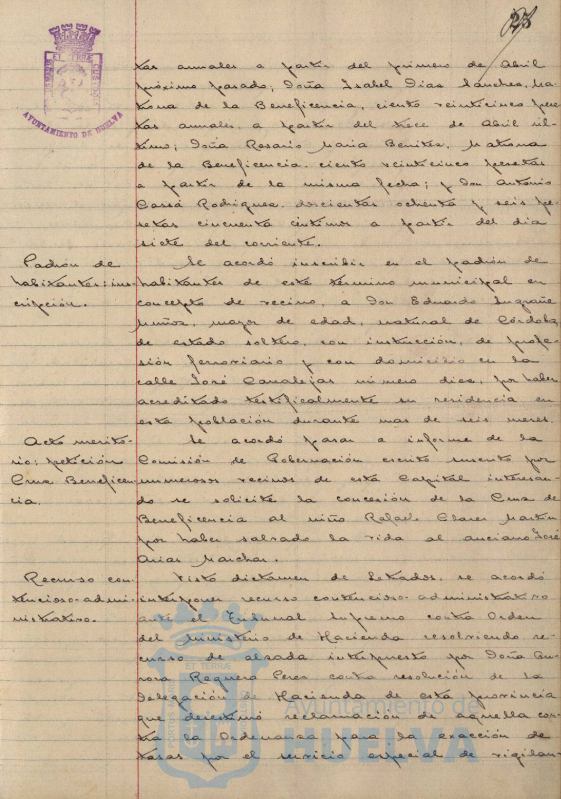 AYUNTAMIENTO DE HUELVA
tas anuales a partir del primero de Abril
próximo pasado; Doña Isabel Dias Sanches, Ma-
trona de la Beneficencia, ciento veinticinco pese
tas anuales, a partir del trece de Abril úl-
timo; Doña Rosario Maria Benites, Matrona
de la Beneficencia, ciento veinticinco pesetas
a partir de la misma fecha; y Don Antonio
Rodriguez, doscientas ochenta y seis pe-
setas cincuenta céntimos a partir del día
siete del corriente.
Padrón de
habitantes: ins-
cripción.
Se acordó inscribir en el padrón de
habitantes de este término municipal en
concepto de vecino, a Don Eduardo
Muñoz, mayor de edad, natural de Córdoba,
de estado soltero, con instrucción, de profe-
sión ferroviario y con domicilio en la
calle José Canalejas número diez, por haber
acreditado testificalmente su residencia en
esta población durante mas de seis meses.
Acto merito-
rio: petición
Cruz Beneficen-
cia.
Se acordó pasar a informe de la
Comisión de Gobernación escrito suscrito por
numerosos vecinos de esta Capital interesan-
do se solicite la concesión de la Cruz de
Beneficencia al niño Rafael Clares Martín
por haber salvado la vida al anciano José
Arias Marchas.
Recurso con-
tencioso-admi-
nistrativo.
Visto dictamen de Letrados, se acordó
interponer recurso contencioso-administrativo
ante el Tribunal Supremo contra Orden
del Ministerio de Hacienda resolviendo re-
curso de alzada interpuesto por Doña Au-
rora Requera Perez contra resolución de la
Delegación de Hacienda de esta provincia
que desestimó reclamación de aquella con-
tra la Ordenanza para la exacción de
tasas por el servicio especial de vigilan-
Ayuntamiento de
HUELVA